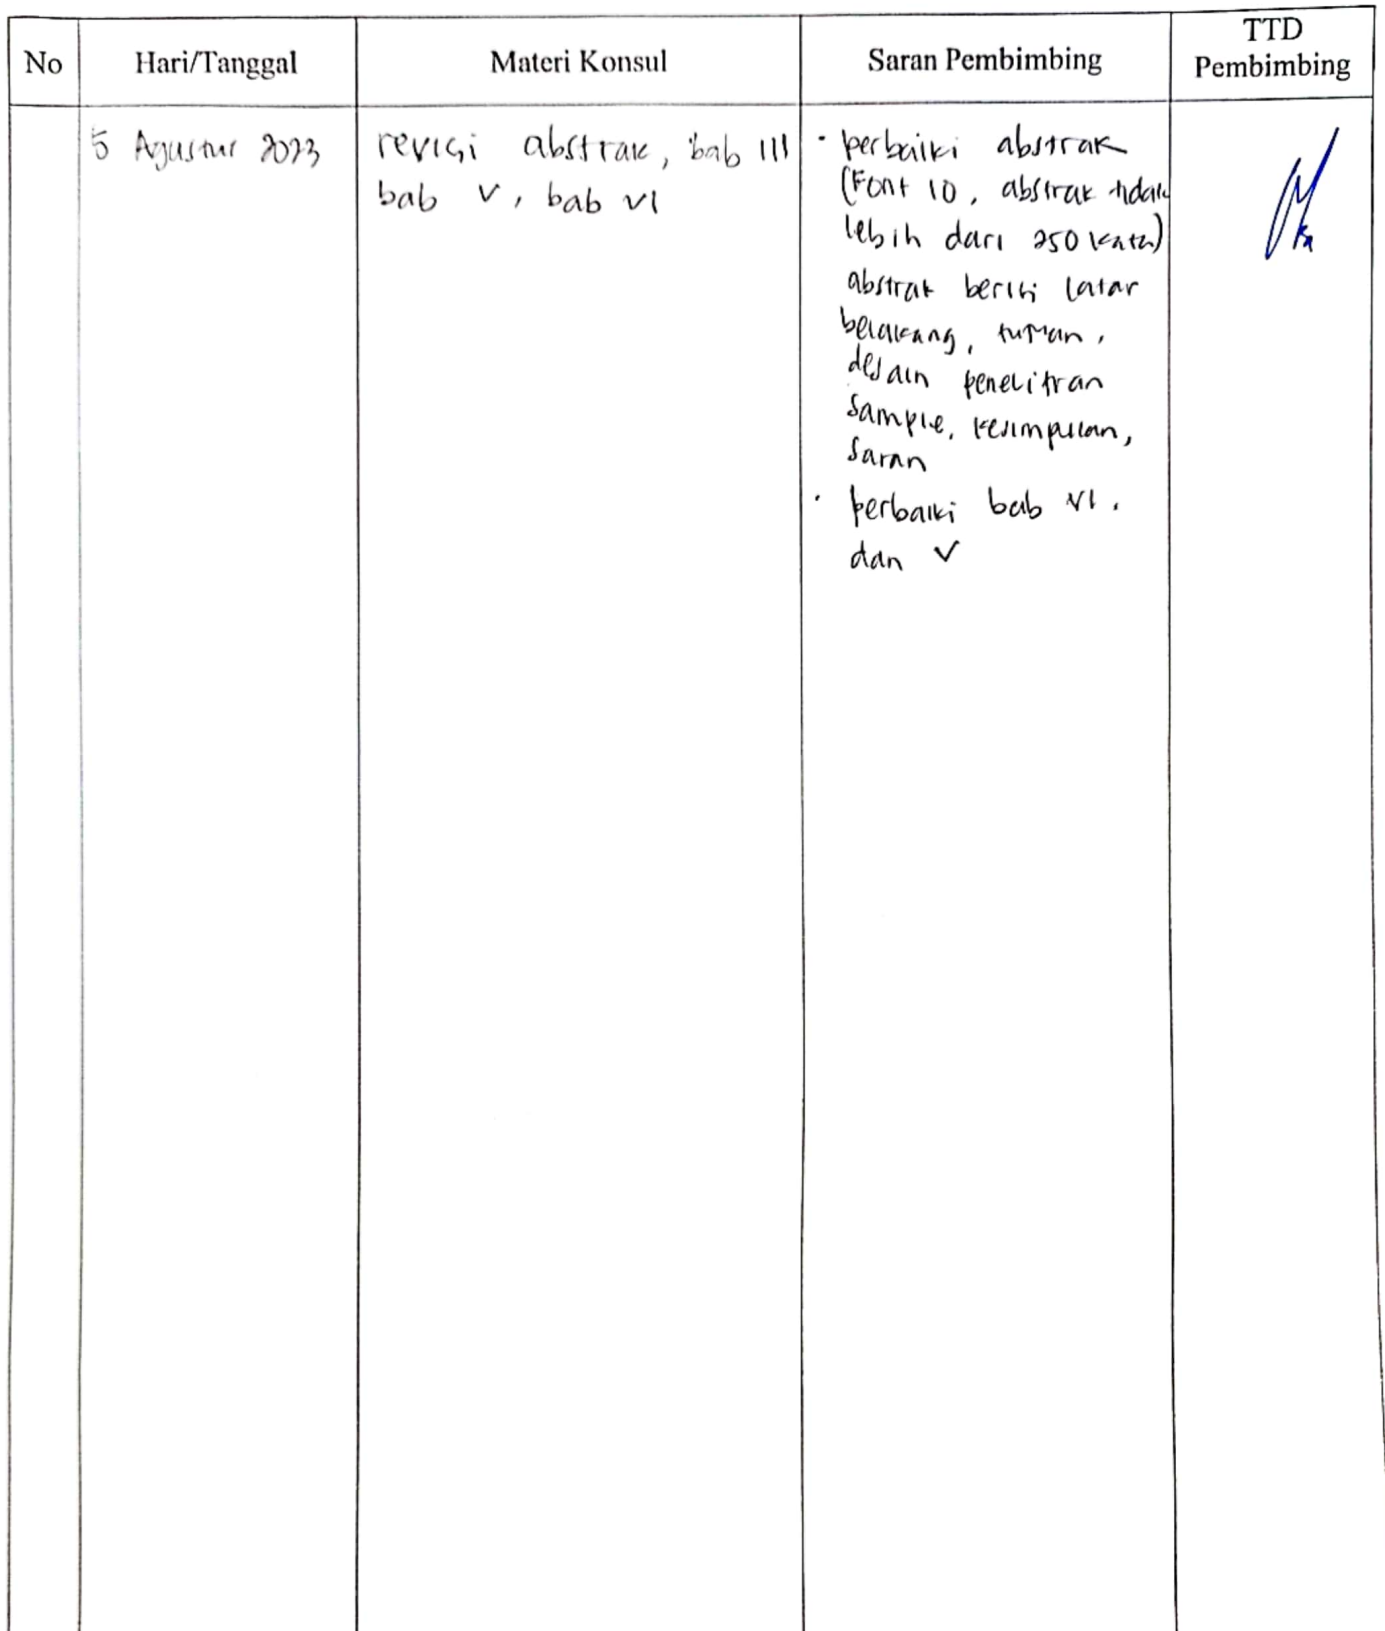 No Hari/Tanggal Materi Konsul Saran Pembimbing TTD Pembimbing
5 Agustus 2023
revisi abstrak, bab III
bab V, bab VI
· perbaiki abstrak
(Font 10, abstrak tidak
lebih dari 250 kata)
abstrak berisi latar
belakang, tujuan,
desain penelitian
sample, kesimpulan,
saran
· perbaiki bab VI.
dan V